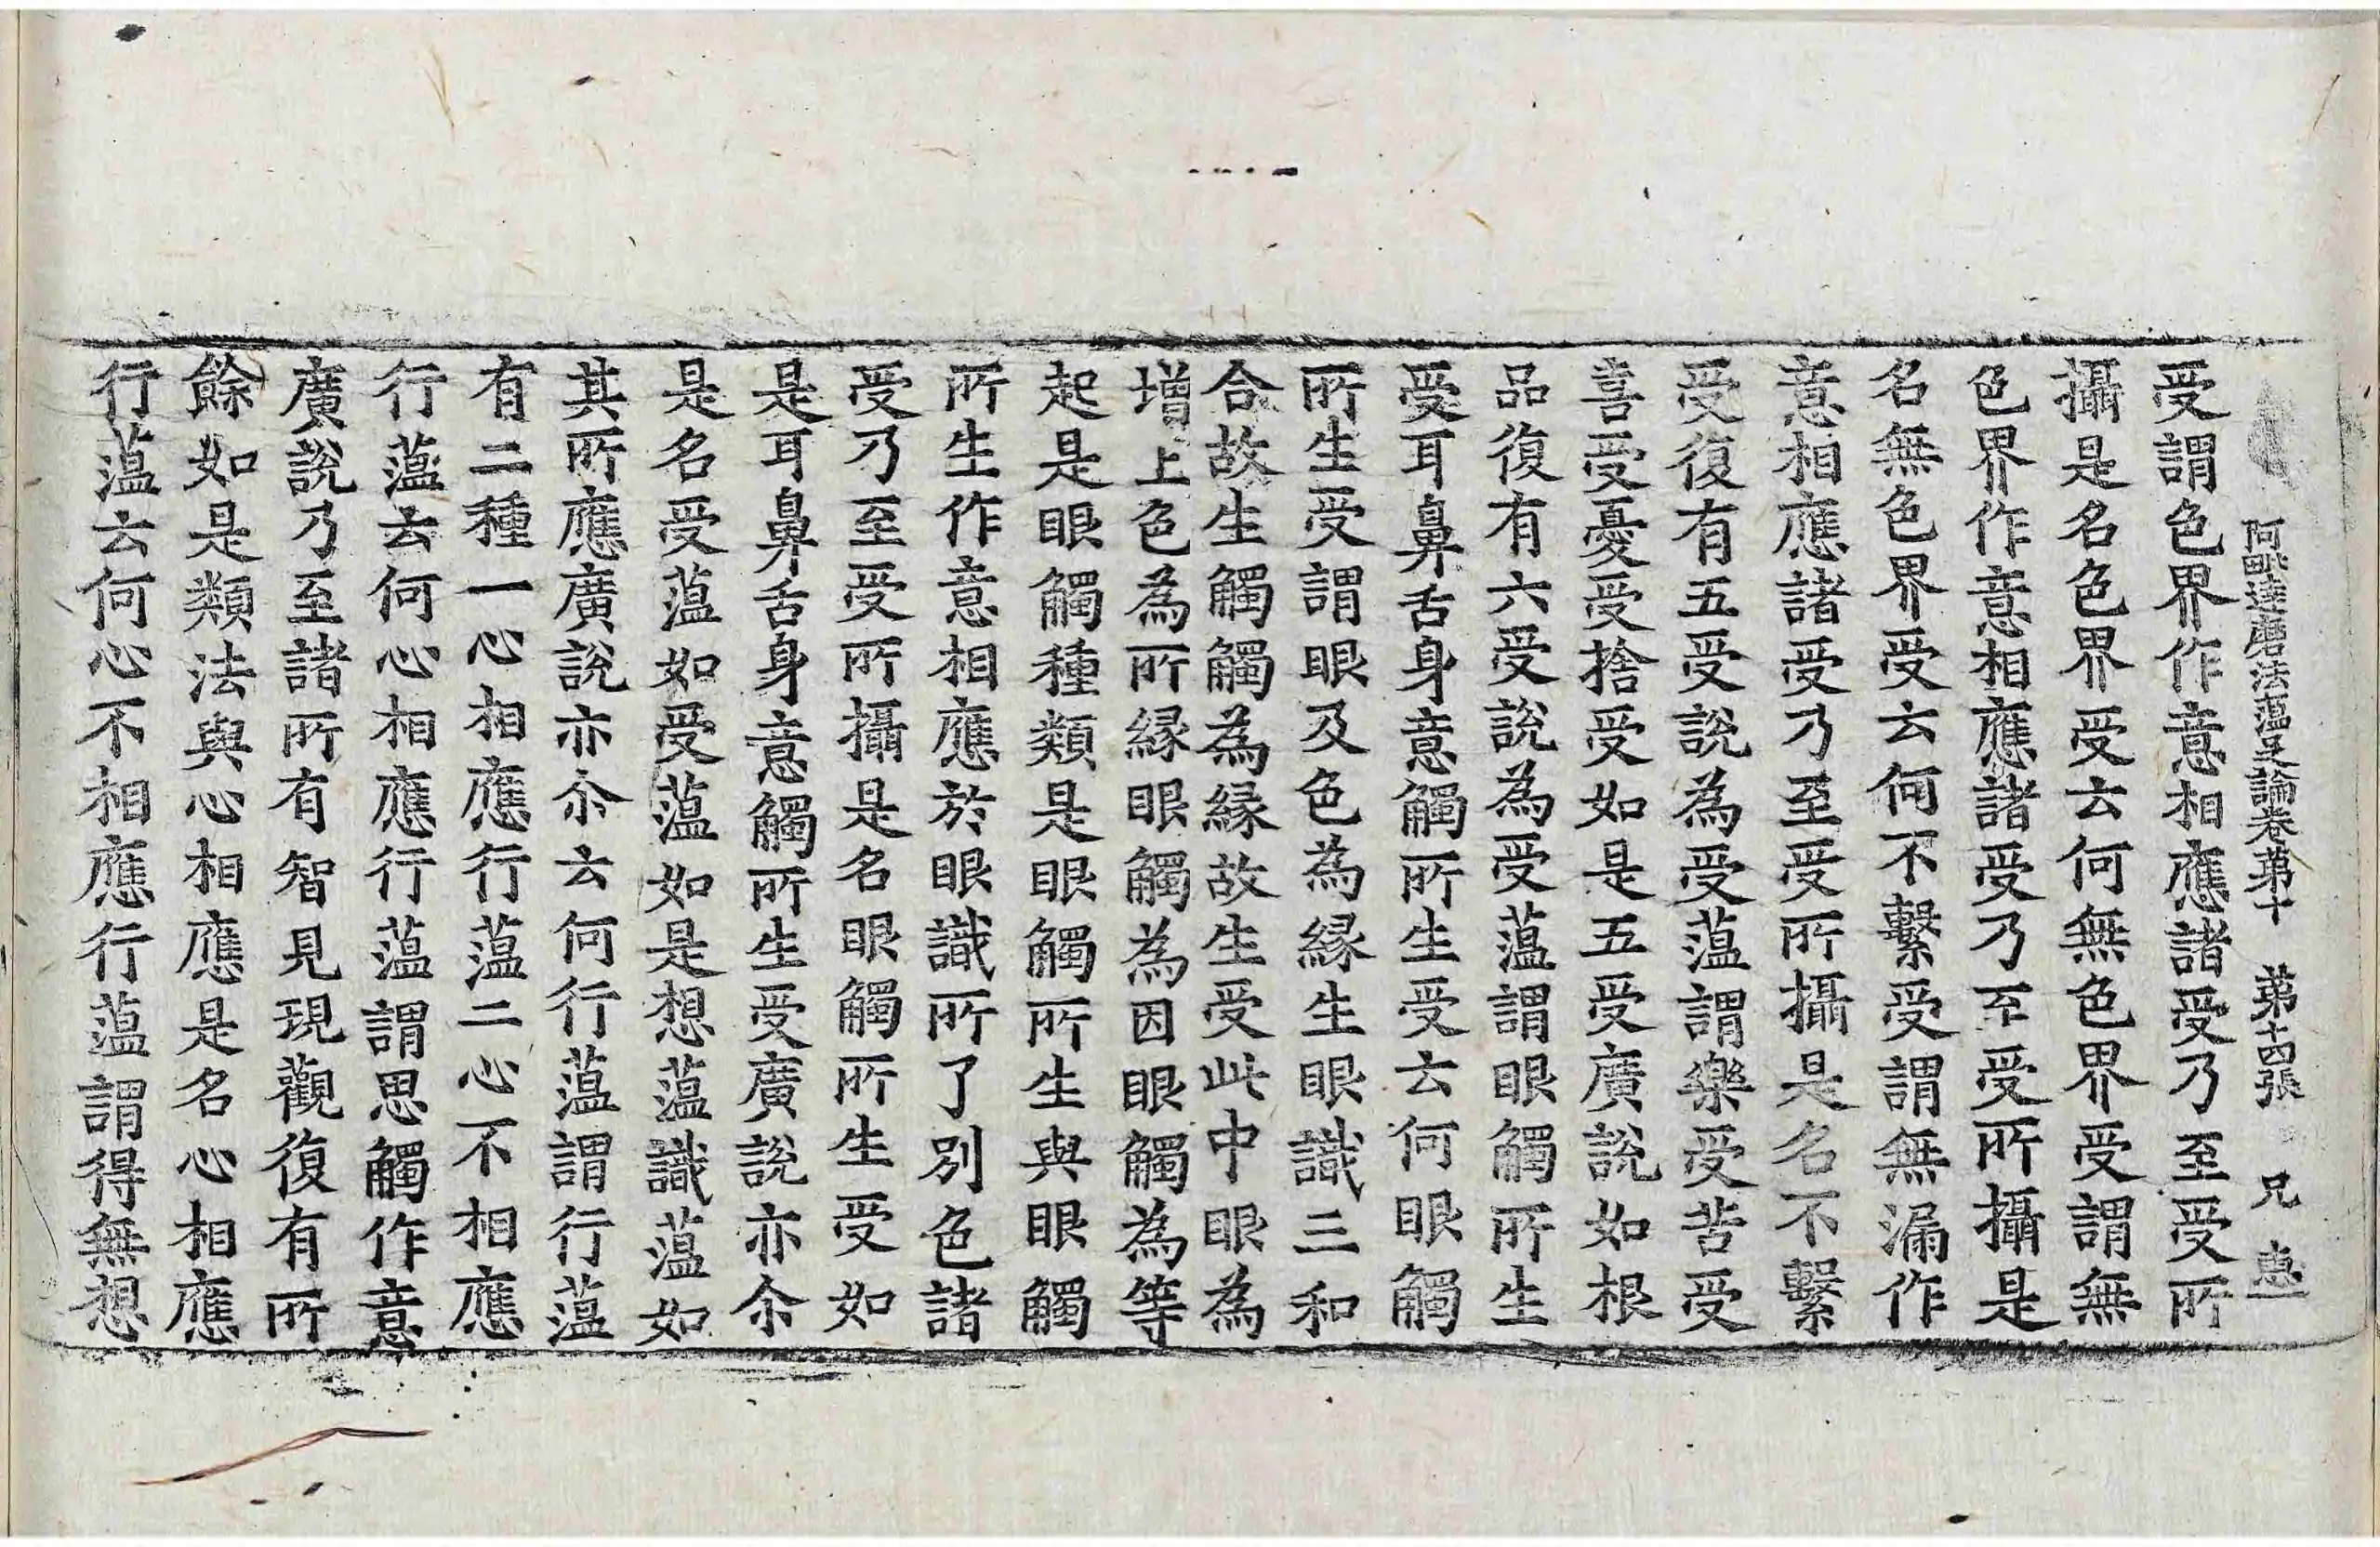 阿毗達磨法蘊足論卷第十 第十四張 兄 惠一
受謂色界作意相應諸受乃至受所
攝是名色界受云何無色界受謂無
色界作意相應諸受乃至受所攝是
名無色界受云何不繫受謂無漏作
意相應諸受乃至受所攝是名不繫
受復有五受說為受蘊謂樂受苦受
喜受憂受捨受如是五受廣說如根
品復有六受說為受蘊謂眼觸所生
受耳鼻舌身意觸所生受云何眼觸
所生受謂眼及色為緣生眼識三和
合故生觸觸為緣故生受此中眼為
增上色為所緣眼觸為因眼觸為等
起是眼觸種類是眼觸所生與眼觸
所生作意相應於眼識所了別色諸
受乃至受所攝是名眼觸所生受如
是耳鼻舌身意觸所生受廣說亦尒
是名受蘊如受蘊如是想蘊識蘊如
其所應廣說亦尒云何行蘊謂行蘊
有二種一心相應行蘊二心不相應
行蘊云何心相應行蘊謂思觸作意
廣說乃至諸所有智見現觀復有所
餘如是類法與心相應是名心相應
行蘊云何心不相應行蘊謂得無想